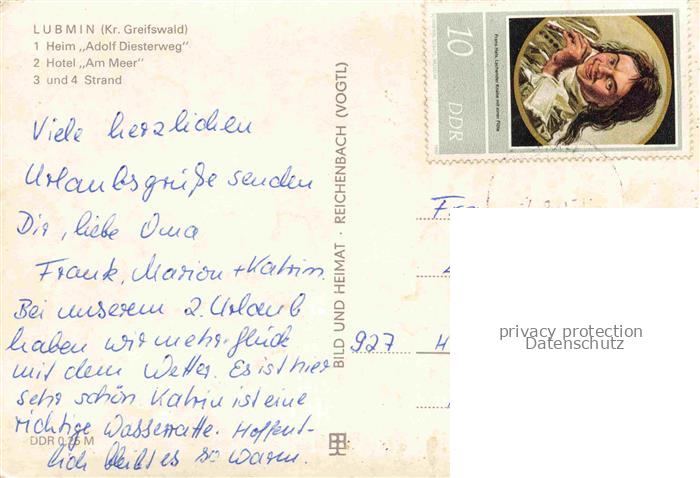 LUBMIN (Kr. Greifswald)
1 Heim „Adolf Diesterweg"
2 Hotel „Am Meer"
3 und 4 Strand
Viele herzlichen
Urlaubsgrüße senden
Dir, liebe Oma
Frank, Marion + Katrin.
Bei unserem 2. Urlaub
haben wir mehr glück
mit dem Wetter. Es ist hier
sehr schön Katrin ist eine
richtige Wasserratte. Hoffent-
lich bleibt es so warm.
DDR 0,25 M
BILD UND HEIMAT · REICHENBACH (VOGTL)
10
DDR
Frans Hals, Lachender Knabe mit einer Flöte
927 H
privacy protection
Datenschutz